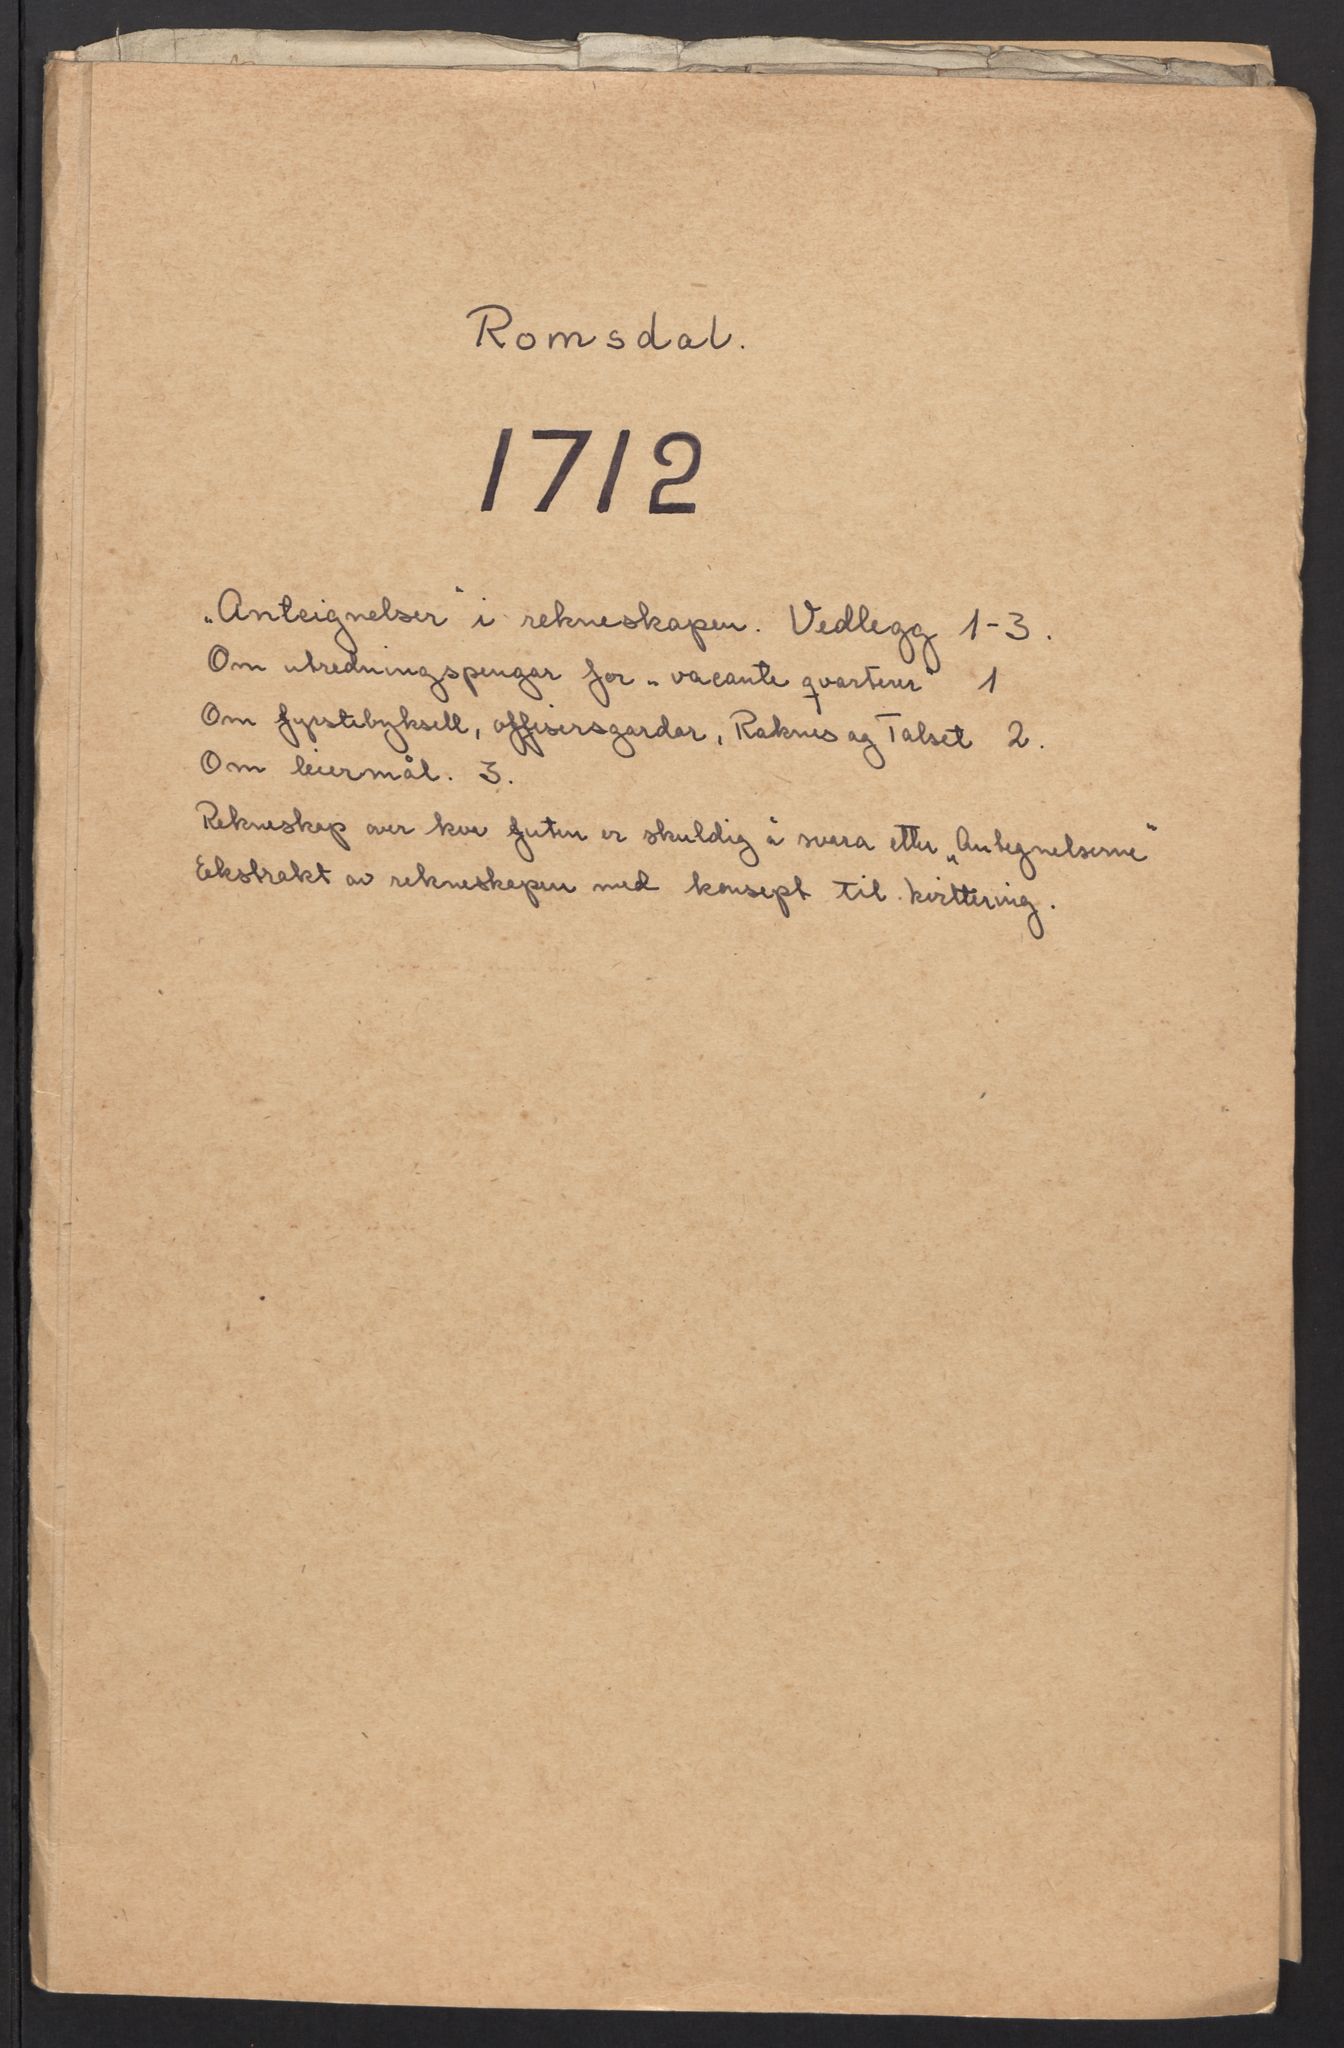 Romsdal.
1712
„Anteignelser“ i rekneskapen. Vedlegg 1-3.
Om utredningspengar for „vacante qvarterer“ 1
Om fyrstebyksell, offisersgardar, Raknes og Talset 2.
Om leiermål. 3.
Rekneskap over kva futen er skuldig å svara etter „Antegnelserne“
Ekstrakt av rekneskapen med konsept til kvittering.